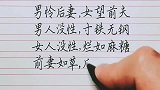 男怜后妻,女望前夫
男人没性,寸铁无钢
女人没性,烂如麻糖
前妻如草,